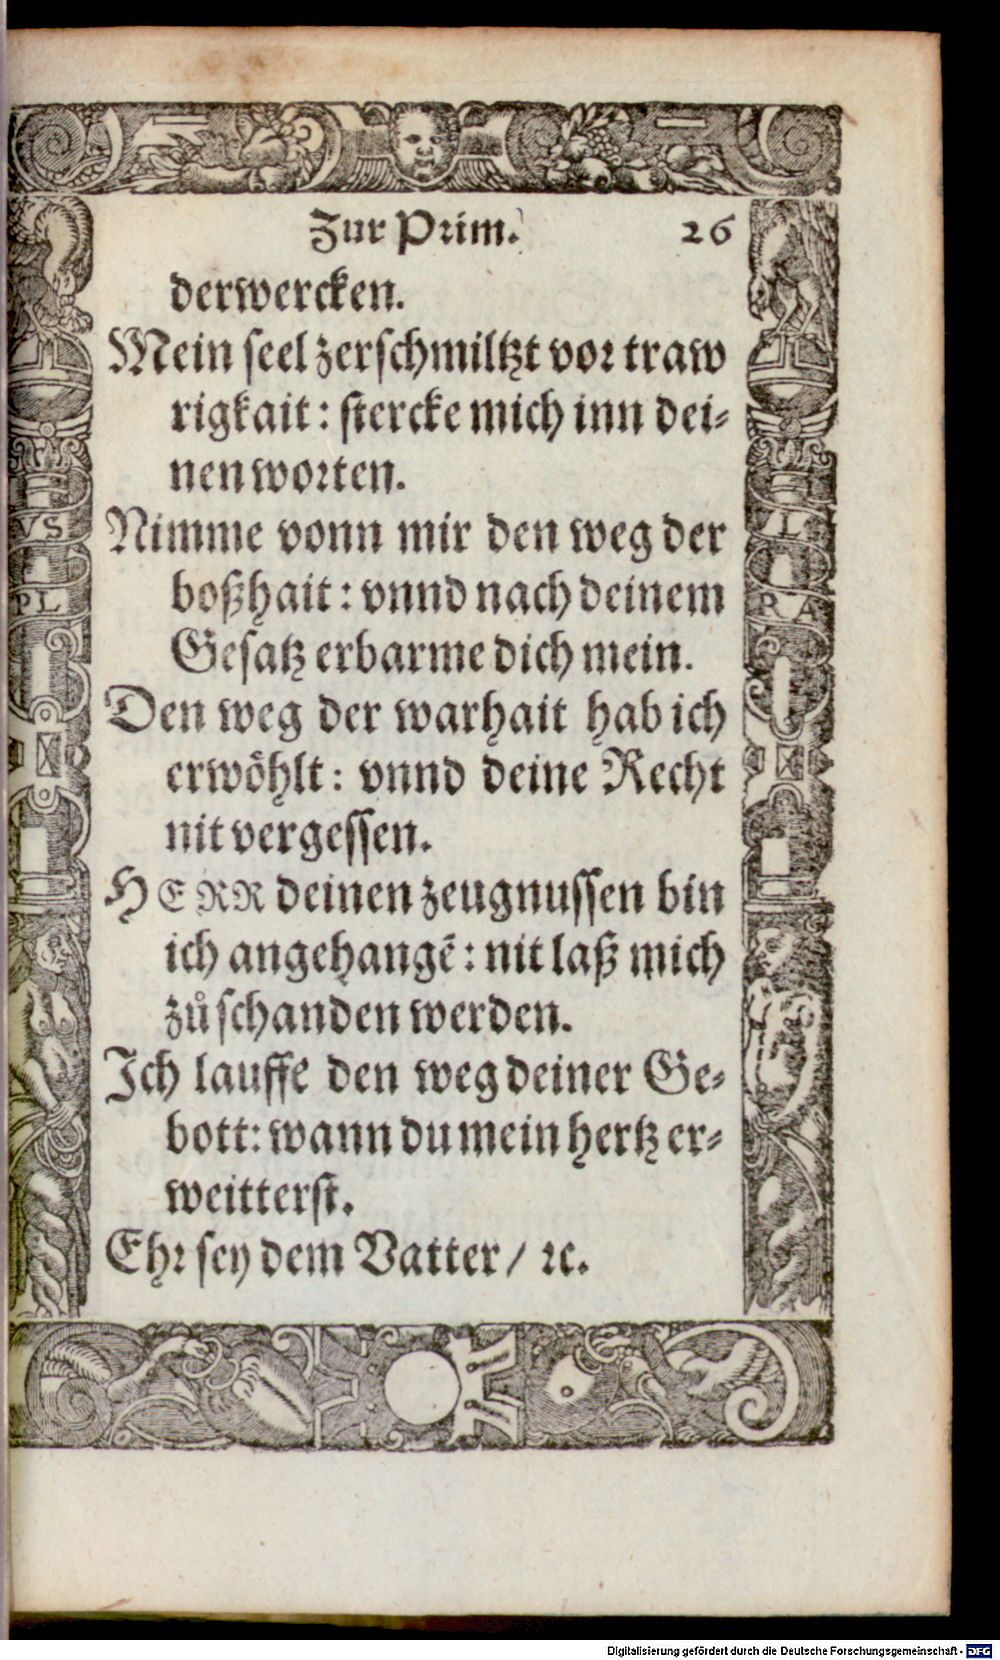 Zur Prim. 26
derwercken.
Mein seel zerschmiltzt vor traw
rigkait: stercke mich inn dei-
nen worten.
VS
Nimme vonn mir den weg der
L
PL
boßhait: vnnd nach deinem
RA
Gesatz erbarme dich mein.
Den weg der warhait hab ich
erwöhlt: vnnd deine Recht
nit vergessen.
HERR deinen zeugnussen bin
ich angehangē: nit laß mich
zů schanden werden.
Ich lauffe den weg deiner Ge-
bott: wann du mein hertz er-
weitterst.
Ehr sey dem Vatter / ꝛc.
Digitalisierung gefördert durch die Deutsche Forschungsgemeinschaft - DFG